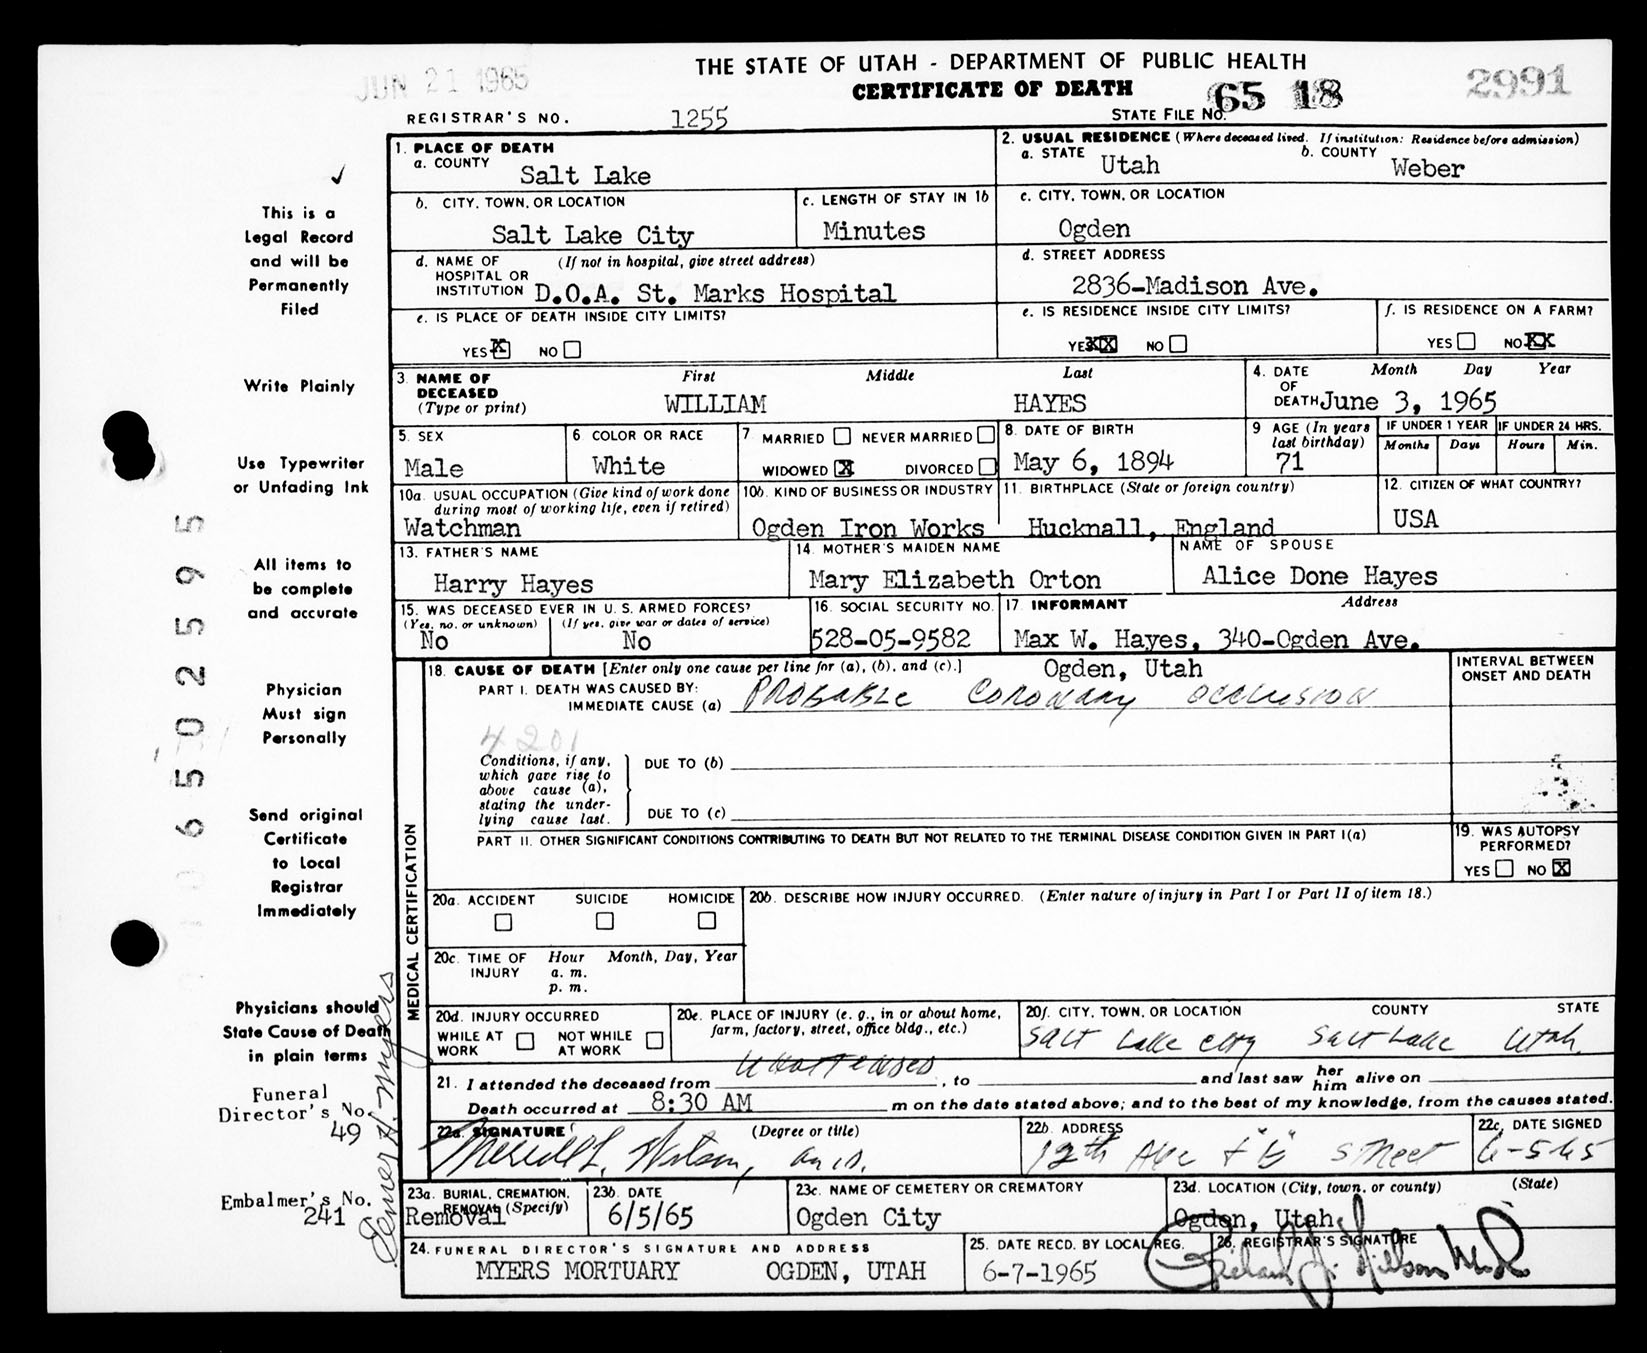 THE STATE OF UTAH - DEPARTMENT OF PUBLIC HEALTH
JUN 21 1965
CERTIFICATE OF DEATH
65 18
2991
REGISTRAR'S NO. 1255
STATE FILE NO.
This is a
Legal Record
and will be
Permanently
Filed
Write Plainly
Use Typewriter
or Unfading Ink
All items to
be complete
and accurate
Physician
Must sign
Personally
Send original
Certificate
to Local
Registrar
Immediately
Physicians should
State Cause of Death
in plain terms
Funeral
Director's No.
49
Embalmer's No.
241
Elmer H. Myers
6502595
1. PLACE OF DEATH
a. COUNTY
Salt Lake
2. USUAL RESIDENCE (Where deceased lived. If institution: Residence before admission)
a. STATE Utah
b. COUNTY Weber
b. CITY, TOWN, OR LOCATION
Salt Lake City
c. LENGTH OF STAY IN 1b
Minutes
c. CITY, TOWN, OR LOCATION
Ogden
d. NAME OF HOSPITAL OR INSTITUTION (If not in hospital, give street address)
D.O.A. St. Marks Hospital
d. STREET ADDRESS
2836-Madison Ave.
e. IS PLACE OF DEATH INSIDE CITY LIMITS?
YES X NO
e. IS RESIDENCE INSIDE CITY LIMITS?
YES XX NO
f. IS RESIDENCE ON A FARM?
YES NO XX
3. NAME OF DECEASED (Type or print)
First Middle Last
WILLIAM HAYES
4. DATE OF DEATH Month Day Year
June 3, 1965
5. SEX
Male
6. COLOR OR RACE
White
7. MARRIED NEVER MARRIED
WIDOWED X DIVORCED
8. DATE OF BIRTH
May 6, 1894
9. AGE (In years last birthday)
71
IF UNDER 1 YEAR
Months Days
IF UNDER 24 HRS.
Hours Min.
10a. USUAL OCCUPATION (Give kind of work done during most of working life, even if retired)
Watchman
10b. KIND OF BUSINESS OR INDUSTRY
Ogden Iron Works
11. BIRTHPLACE (State or foreign country)
Hucknall, England
12. CITIZEN OF WHAT COUNTRY?
USA
13. FATHER'S NAME
Harry Hayes
14. MOTHER'S MAIDEN NAME
Mary Elizabeth Orton
NAME OF SPOUSE
Alice Done Hayes
15. WAS DECEASED EVER IN U. S. ARMED FORCES?
(Yes, no, or unknown) (If yes, give war or dates of service)
No No
16. SOCIAL SECURITY NO.
528-05-9582
17. INFORMANT Address
Max W. Hayes, 340-Ogden Ave.
Ogden, Utah
MEDICAL CERTIFICATION
18. CAUSE OF DEATH [Enter only one cause per line for (a), (b), and (c).]
INTERVAL BETWEEN ONSET AND DEATH
PART I. DEATH WAS CAUSED BY:
IMMEDIATE CAUSE (a) Probable Coronary occlusion
4201
Conditions, if any, which gave rise to above cause (a), stating the underlying cause last.
DUE TO (b)
DUE TO (c)
PART II. OTHER SIGNIFICANT CONDITIONS CONTRIBUTING TO DEATH BUT NOT RELATED TO THE TERMINAL DISEASE CONDITION GIVEN IN PART I(a)
19. WAS AUTOPSY PERFORMED?
YES NO X
20a. ACCIDENT SUICIDE HOMICIDE
20b. DESCRIBE HOW INJURY OCCURRED. (Enter nature of injury in Part I or Part II of item 18.)
20c. TIME OF INJURY Hour Month, Day, Year
a. m.
p. m.
20d. INJURY OCCURRED
WHILE AT WORK NOT WHILE AT WORK
20e. PLACE OF INJURY (e. g., in or about home, farm, factory, street, office bldg., etc.)
20f. CITY, TOWN, OR LOCATION COUNTY STATE
Salt Lake City Salt Lake Utah.
21. I attended the deceased from Unattended, to and last saw her him alive on
Death occurred at 8:30 AM m on the date stated above; and to the best of my knowledge, from the causes stated.
22a. SIGNATURE (Degree or title)
22b. ADDRESS
12th Ave + "E" Street
22c. DATE SIGNED
6-5-65
23a. BURIAL, CREMATION, REMOVAL (Specify)
Removal
23b. DATE
6/5/65
23c. NAME OF CEMETERY OR CREMATORY
Ogden City
23d. LOCATION (City, town, or county) (State)
Ogden, Utah
24. FUNERAL DIRECTOR'S SIGNATURE AND ADDRESS
MYERS MORTUARY OGDEN, UTAH
25. DATE RECD. BY LOCAL REG.
6-7-1965
26. REGISTRAR'S SIGNATURE